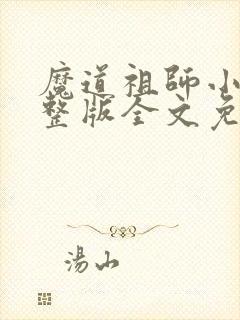 魔道祖師小
整版全文免
湯山